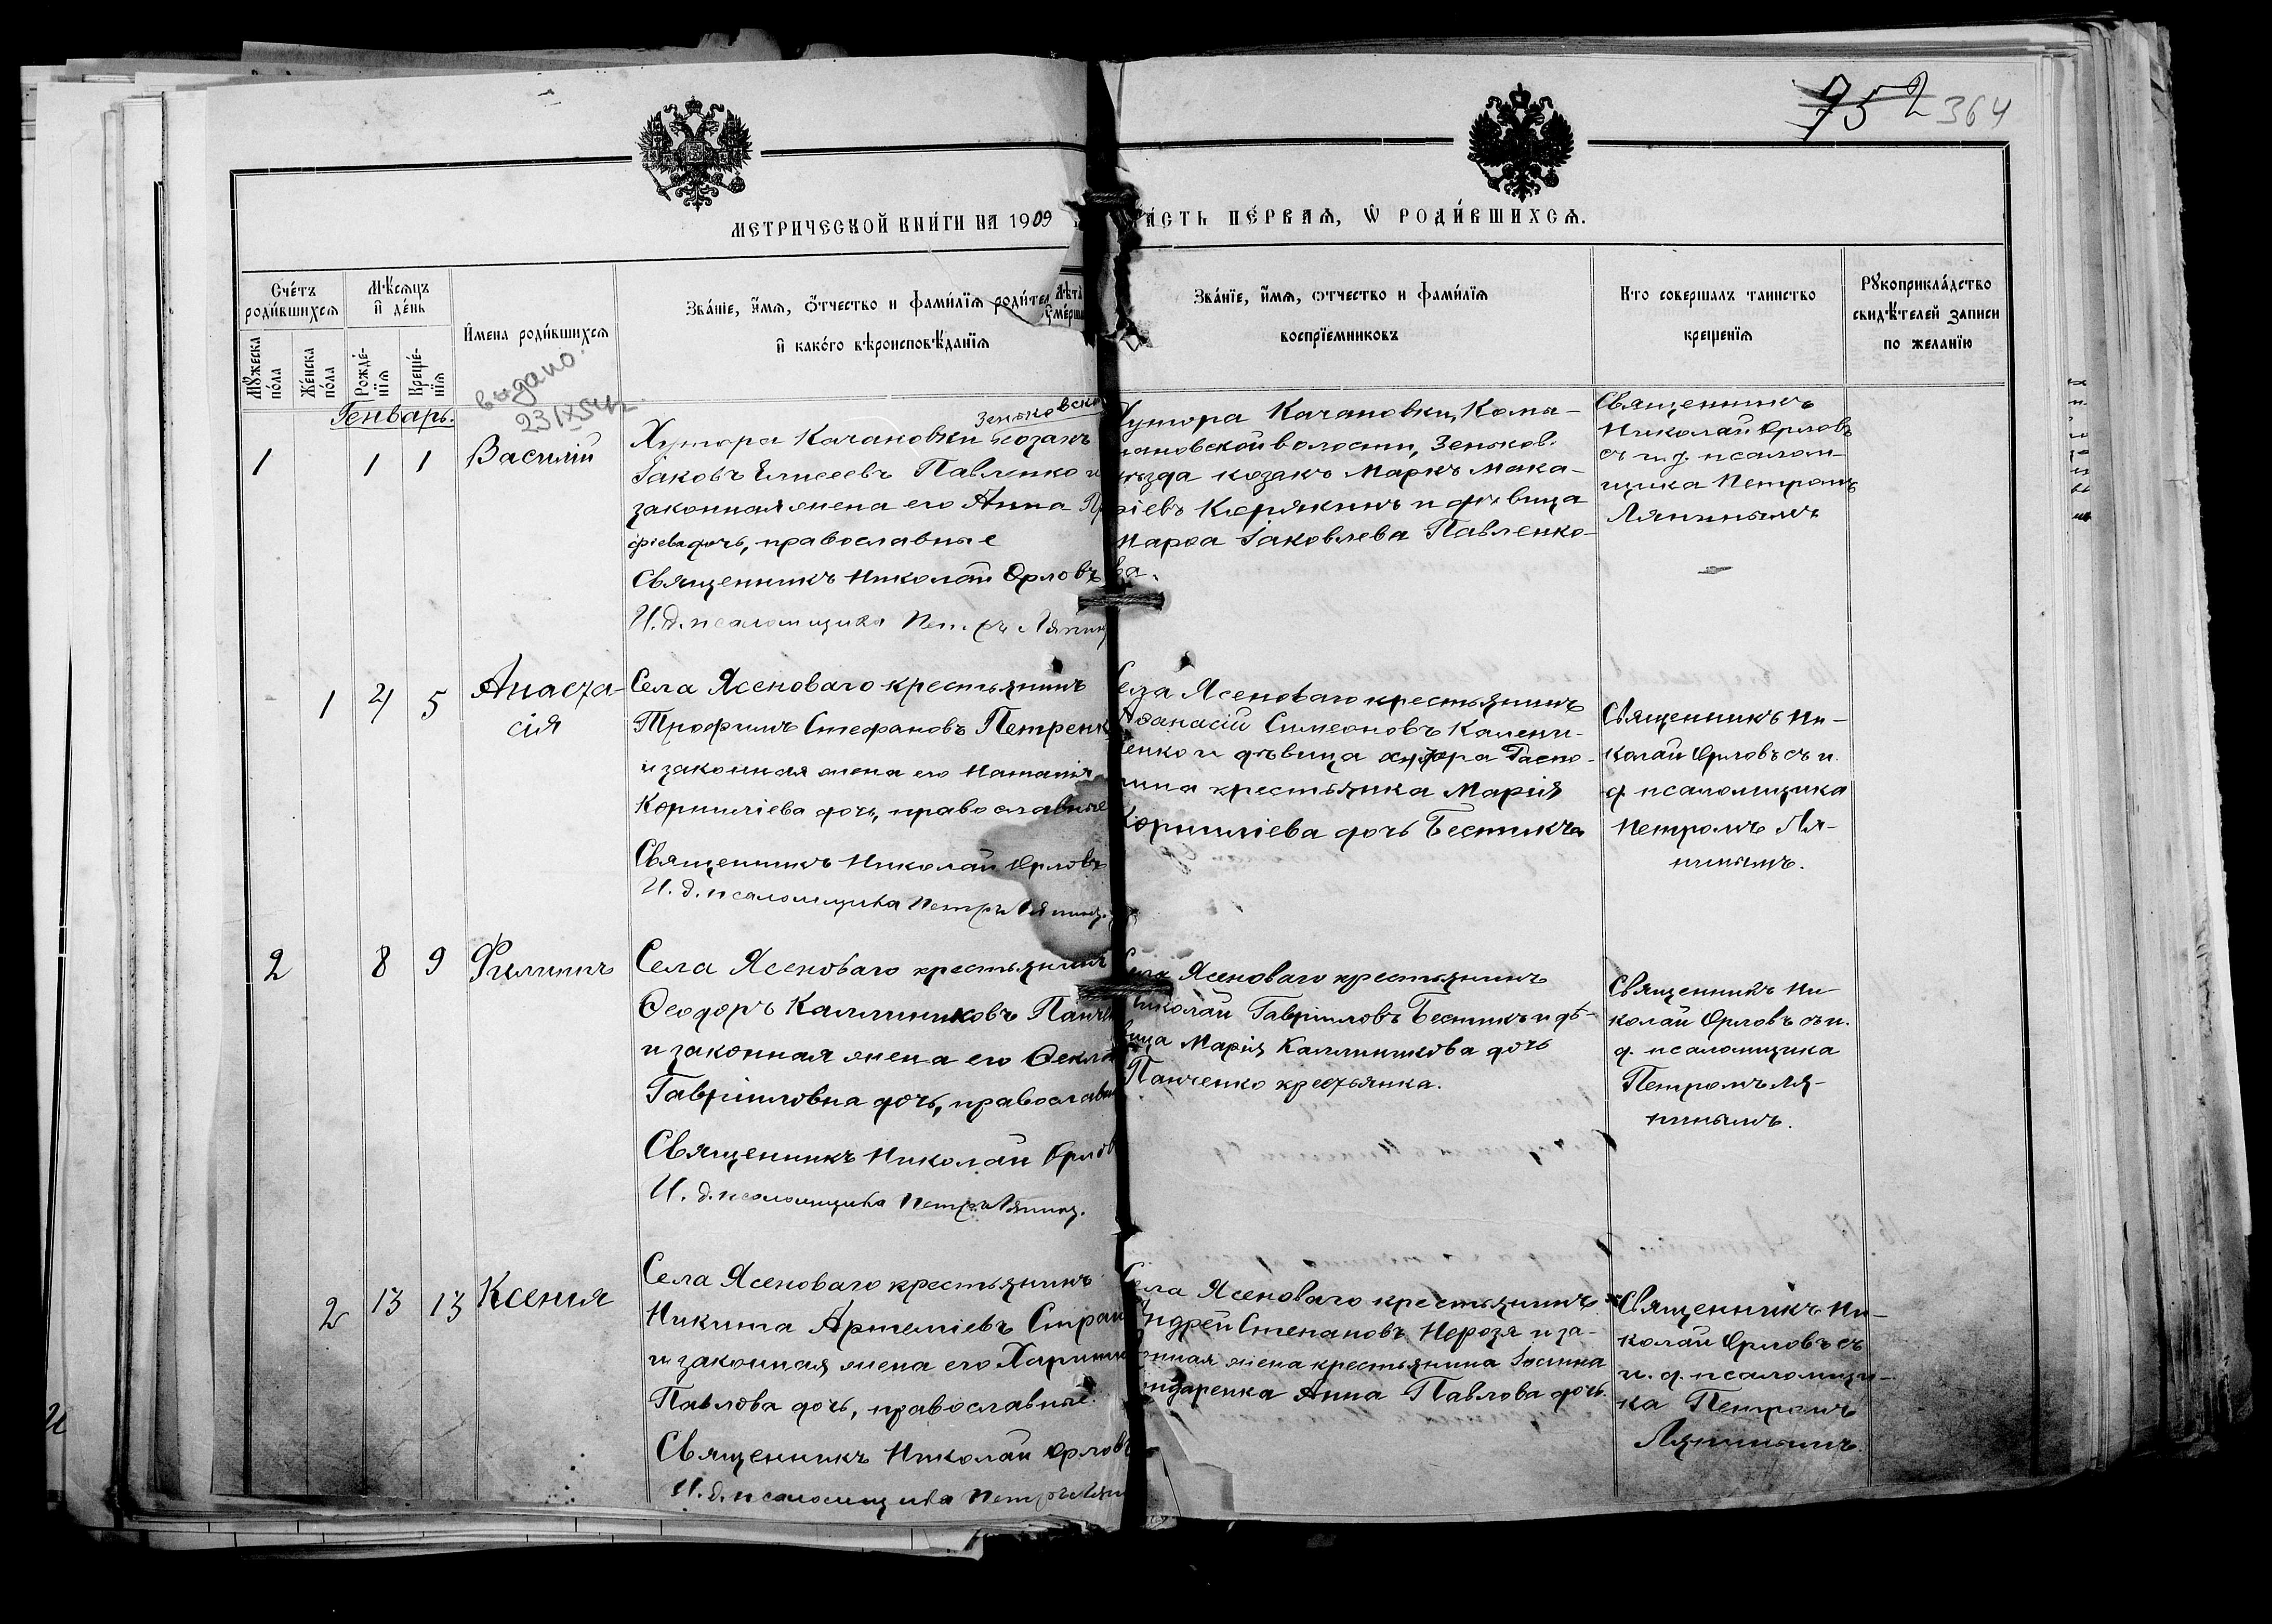 752 364
МЕТРИЧЕСКОЙ КНИГИ НА 1909
ЧАСТЬ ПЕРВАЯ, Ѡ РОДИВШИХСЯ.
Счетъ родившихся
Мужеска пола
Женска пола
Мѣсяцъ и день
Рожденія
Крещенія
Имена родившихся
Званіе, имя, отчество и фамилія родител
и какого вѣроисповѣданія
Званіе, имя, отчество и фамилія
воспріемниковъ
Кто совершалъ таинство
крещенія
Рукоприкладство
свидѣтелей записи
по желанію
выдано
23/IX 54 г.
Генварь.
1 1 1
Василій
Зеньковско
Хутора Качановки козакъ
Іаковъ Елисеевъ Павленко и
законная жена его Анна
фіева дочь, православные
Священникъ Николай Орловъ
И. д. псаломщика Петръ Ляпинъ
Хутора Качановки, Кома-
новской волости, Зеньков.
уѣзда козакъ Маркъ Мака-
ріевъ Корякинъ и дѣвица
Марѳа Іаковлева Павленко-
ва.
Священникъ
Николай Орловъ
съ и. д. псалом-
щика Петромъ
Ляпинымъ
1 4 5
Анаста-
сія
Села Ясеноваго крестьянинъ
Трофимъ Стефановъ Петренк
и законная жена его Наталія
Корниліева дочь, православные
Священникъ Николай Орловъ
И. д. псаломщика Петръ Ляпинъ.
Села Ясеноваго крестьянинъ
Аѳанасій Симеоновъ Калени-
ченко и дѣвица хутора
крестьянка Марія
Корниліева дочь Бесникъ
Священникъ Ни-
колай Орловъ съ и.
д. псаломщика
Петромъ Ля-
пинымъ.
2 8 9
Филиппъ
Села Ясеноваго крестьянинъ
Ѳеодоръ Каллиниковъ Панчен
и законная жена его Ѳекла
Гавріиловна дочь, православн
Священникъ Николай Орлов
И. д. псаломщика Петръ Ляпинъ.
Села Ясеноваго крестьянинъ
Николай Гавріиловъ Бесникъ и дѣ-
вица Марія Каллиникова дочь
Панченко крестьянка.
Священникъ Ни-
колай Орловъ съ и.
д. псаломщика
Петромъ Ля-
пинымъ.
2 13 13
Ксенія
Села Ясеноваго крестьянинъ
Никита Артеміевъ
и законная жена его
Павлова дочь, православные.
Священникъ Николай Орловъ
И. д. псаломщика Петръ Ляпи
Села Ясеноваго крестьянинъ
Андрей Степановъ и за-
онная жена крестьянина
ндаренка Анна Павлова дочь.
Священникъ Ни-
колай Орловъ съ
и. д. псаломщи-
ка Петромъ
Ляпинымъ.